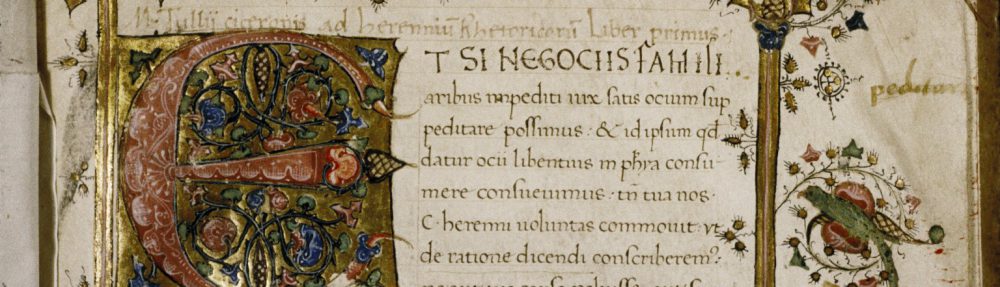 M. Tullii ciceronis ad herenniū Rhetoricorū Liber primus.
ET SI NEGOCIIS FAMILI
aribus impediti uix satis ocium sup
peditare possimus · & id ipsum qđ
datur ocii libentius in ph̄ia consu
mere consueuimus · tn̄ tua nos ·
C · herenni uoluntas commouit · ut
de ratione dicendi conscriberem?
peditar